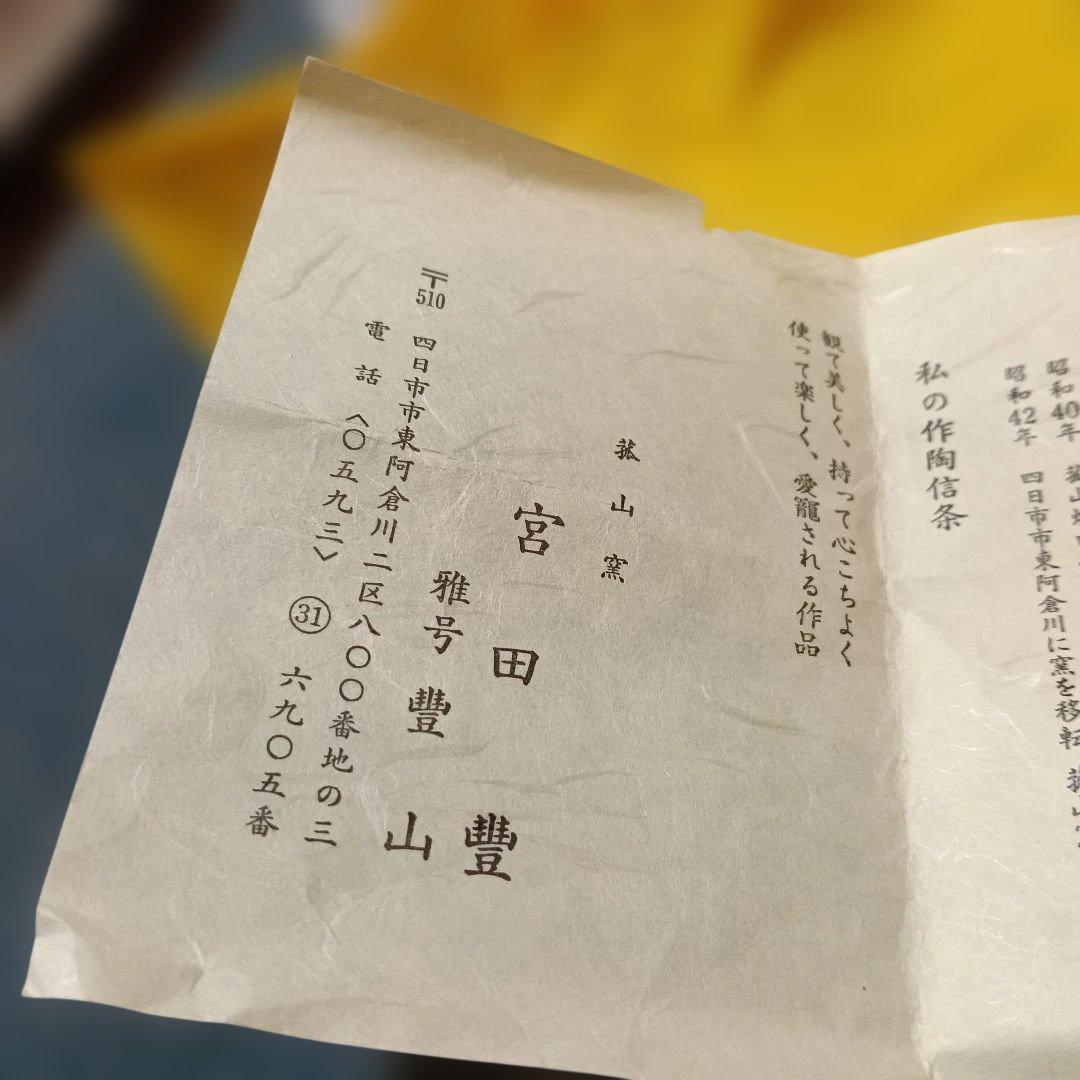 昭和40年
昭和42年 四日市市東阿倉川に窯を移転
私の作陶信条
観て美しく、持って心こちよく
使って楽しく、愛寵される作品
菰山窯
宮田豐
雅号 豐山
〒510 四日市市東阿倉川二区八〇〇番地の三
電話〈〇五九三〉㉛六九〇五番